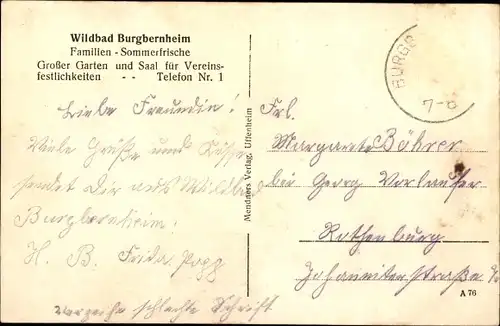 Wildbad Burgbernheim
Familien - Sommerfrische
Großer Garten und Saal für Vereins-
festlichkeiten - - Telefon Nr. 1
Liebe Freundin!
Viele Grüße und Küsse
sendet Dir aus Wildbad
Burgbernheim!
H. B. Frida Popp
Verzeihe schlechte Schrift
Mendners Verlag, Uffenheim
BURGB
7-8
Frl.
Margarete Böhrer
bei Georg Vorlaufer
Rothenburg
Johanniterstraße
A 76